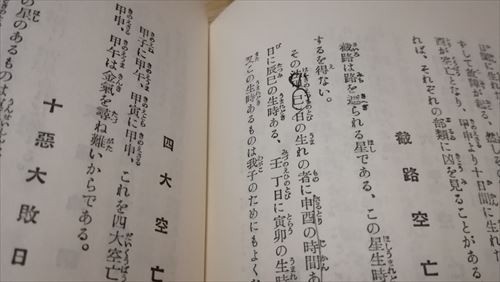 そして故障が起る、然し
酉が空亡となり、甲申より十日間に生れた
れば、それぞれの部類に凶を見ることがある
截路空亡
截路は路を遮られる星である、この星生時
するを得ない。
己の生れの者に申酉の時間あ
日に辰巳の生時ある、壬丁日に寅卯の生時
この生時あるものは我子のためにもよくな
四大空亡
甲子に甲午、甲寅に甲申、これを四大空亡
甲申、甲午は金氣を尋ね難いからである。
十惡大敗日
の星のあるものは